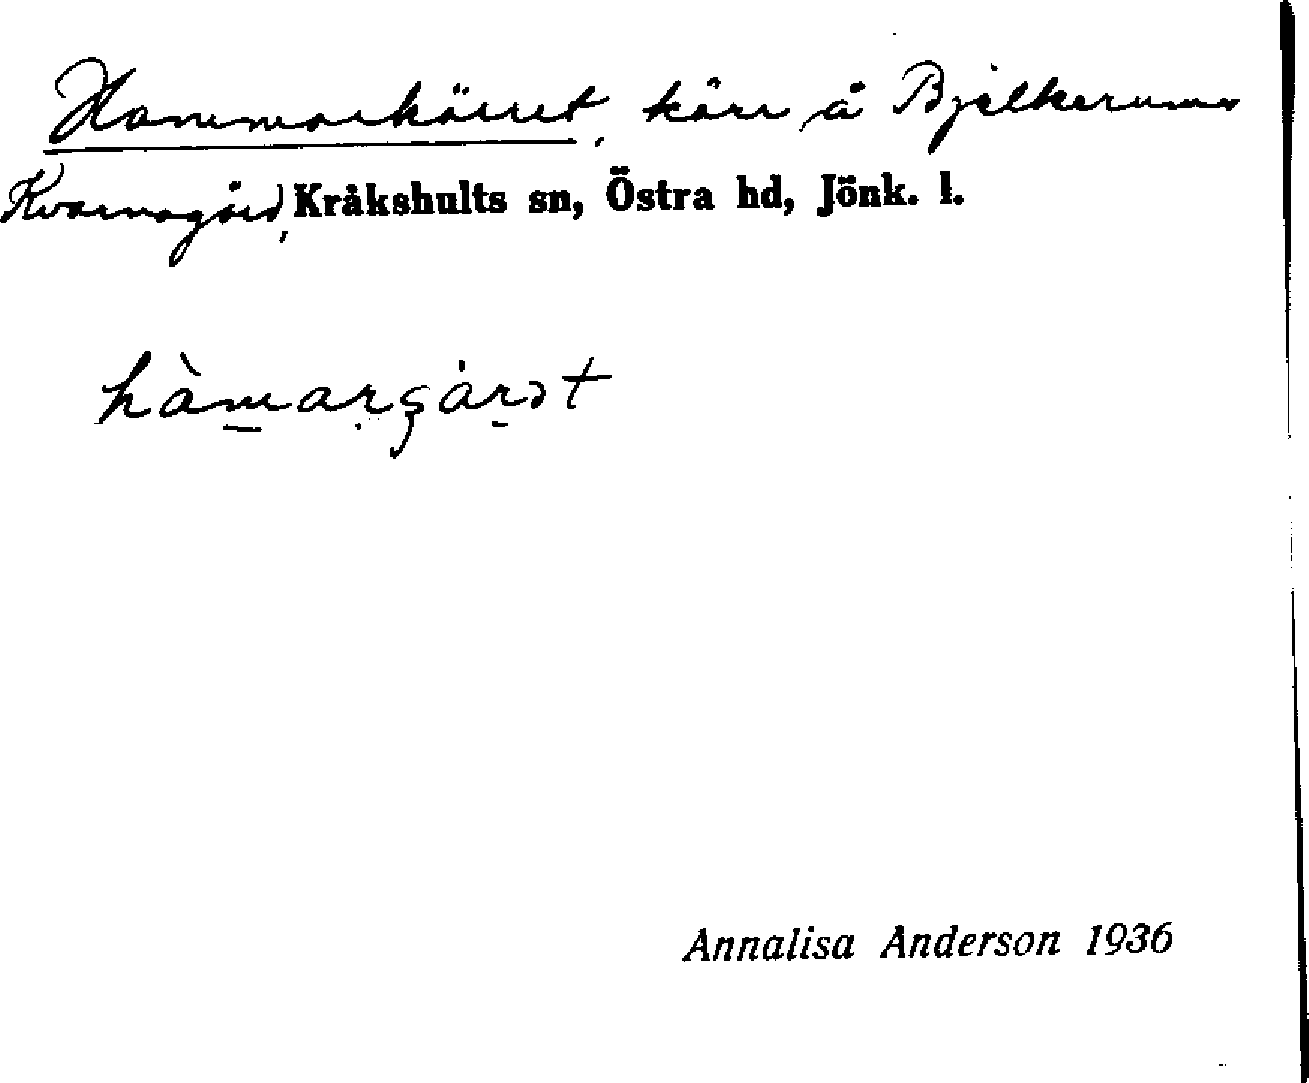 Hammarkärret, kärr å Bjälkerums
Kvarnagård, Kråkshults sn, Östra hd, Jönk. l.
hàmarçárət
Annalisa Anderson 1936